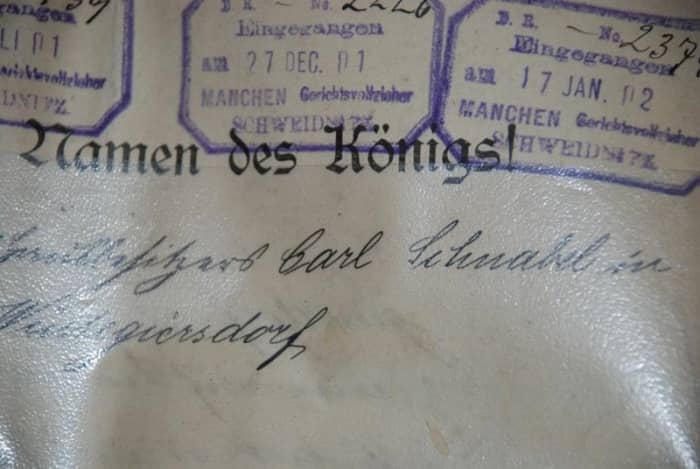 Eingegangen
LI 01
Gerichtsvollzieher
D. R. — No. 2226
Eingegangen
am 27 DEC. 01
MANCHEN Gerichtsvollzieher
SCHWEIDNITZ
D. R. — No. 237
Eingegangen
am 17 JAN. 02
MANCHEN Gerichtsvollzieher
SCHWEIDNITZ
Namen des Königs!
Carl Schnabel in